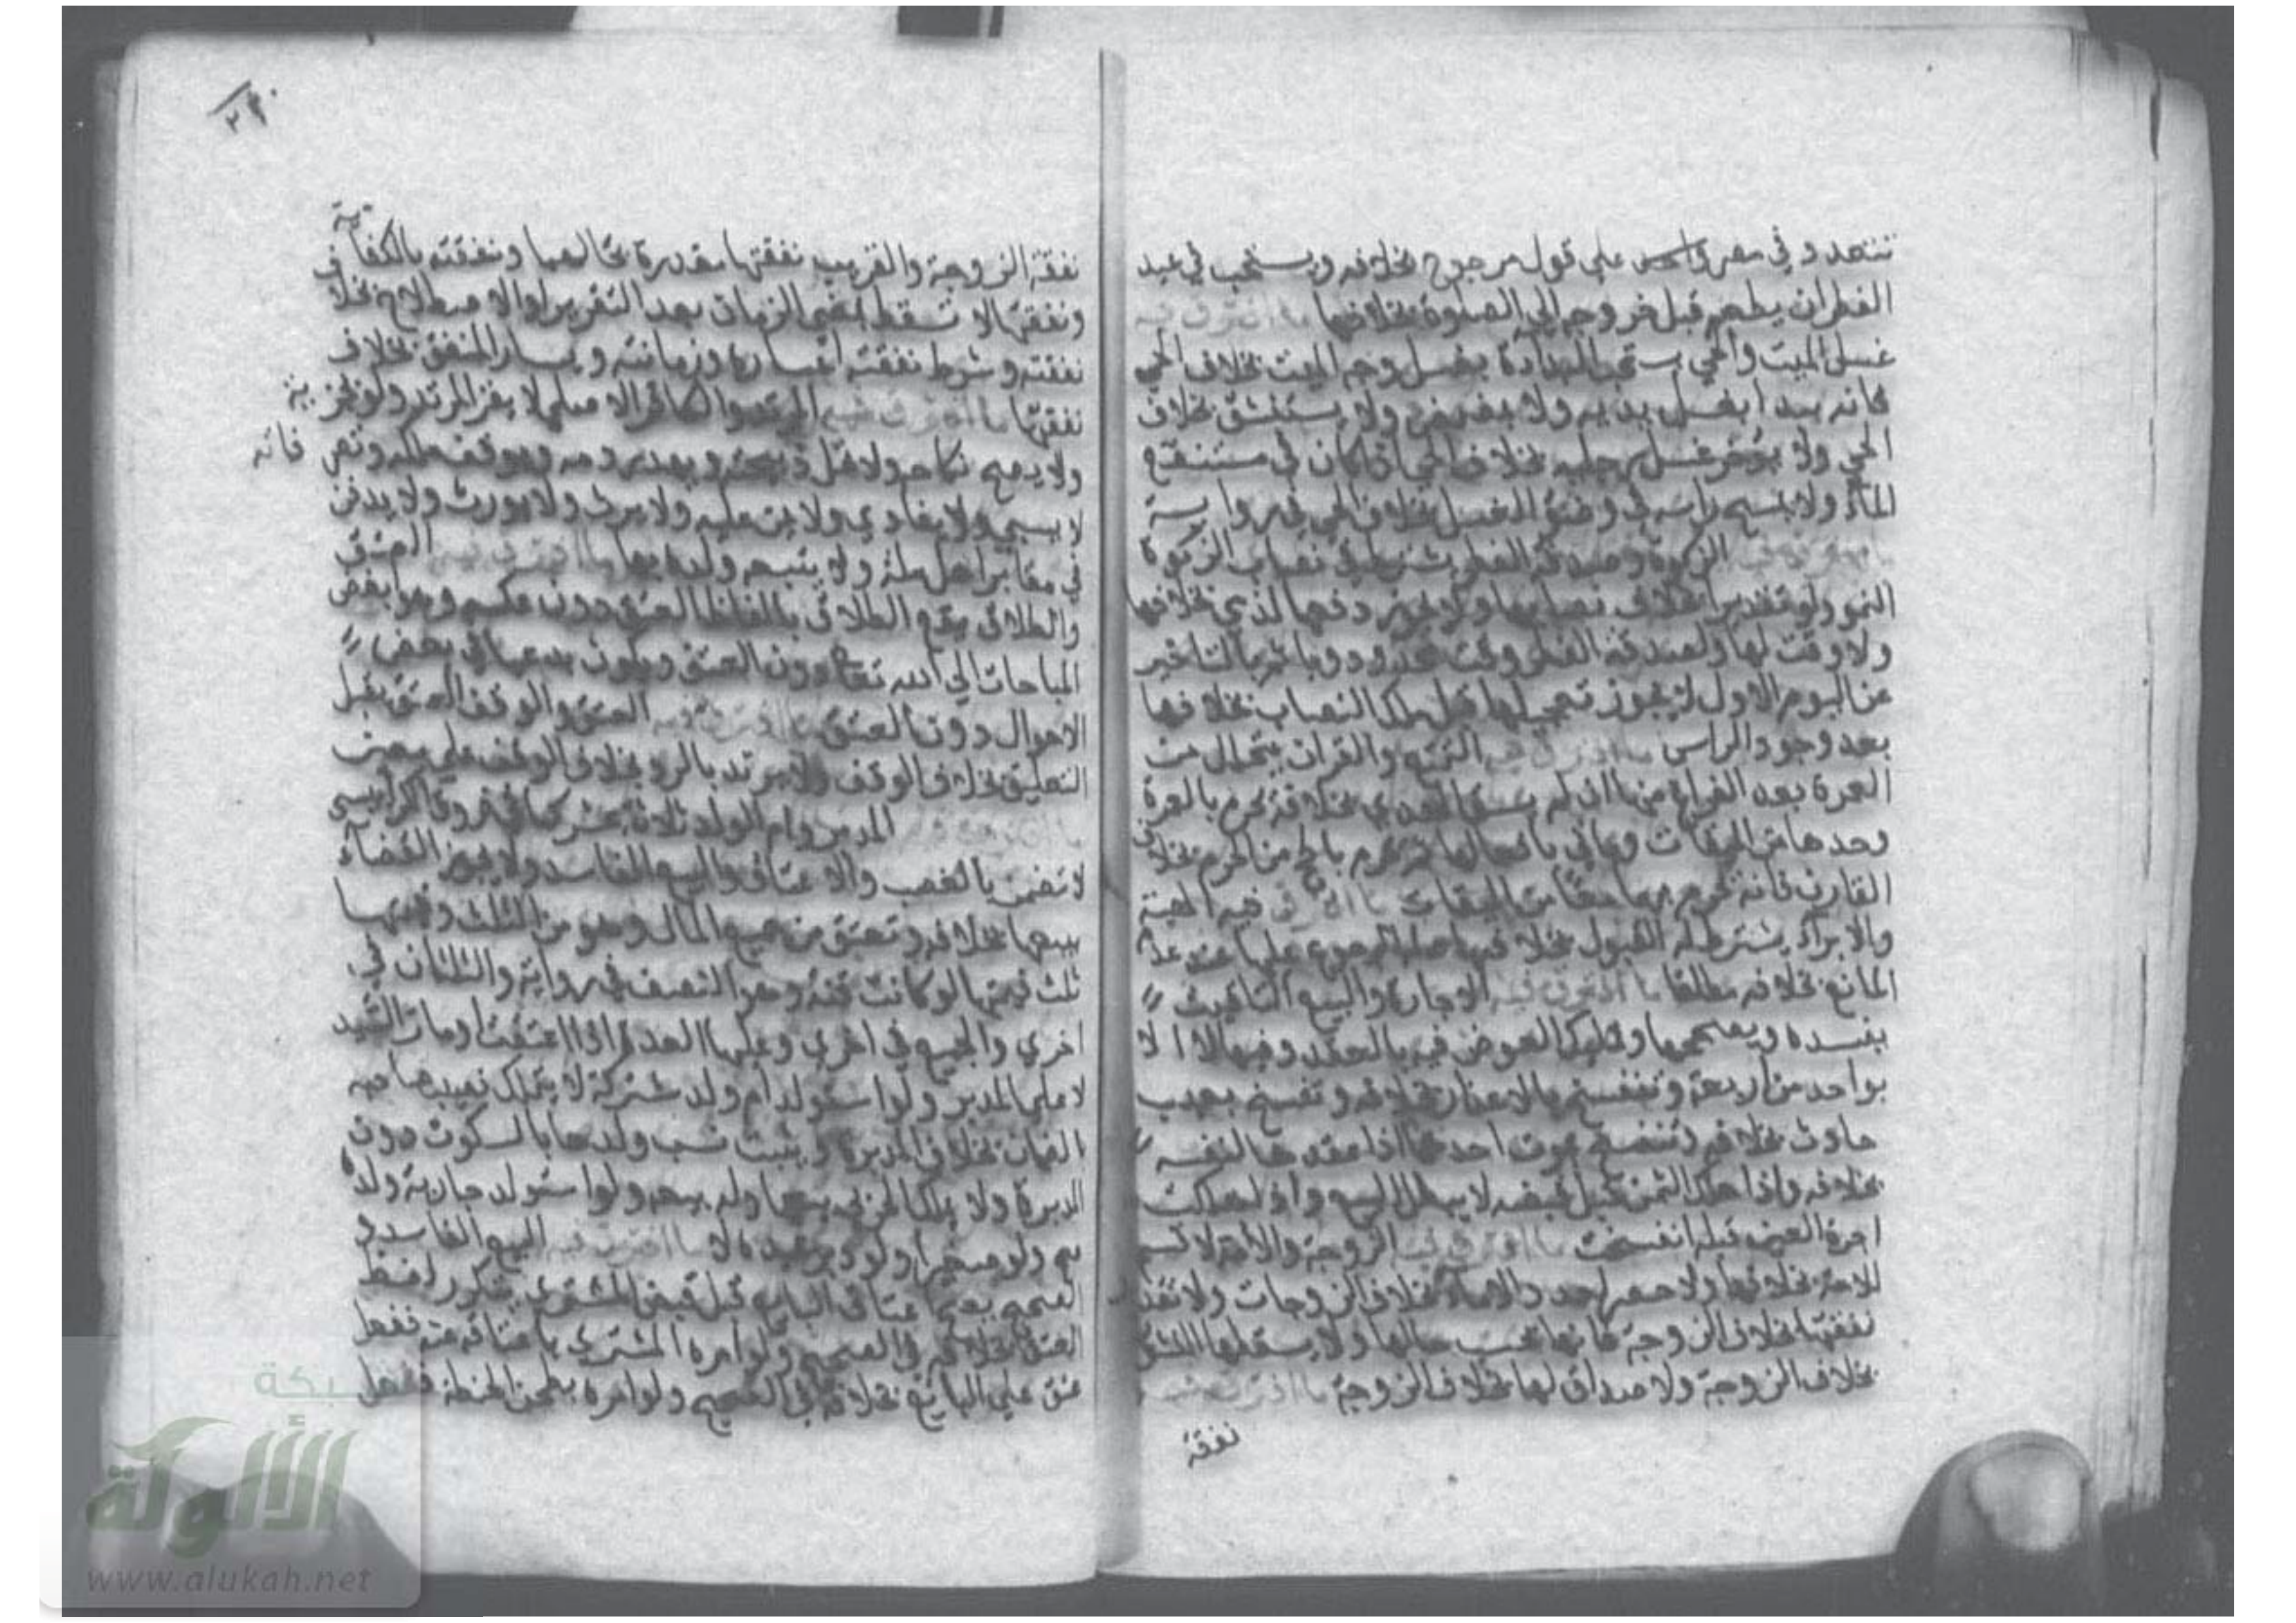 تتعدد في مصر واحد علي قول مرجوح بخلافه ويستحب في عيد
الفطر ان يطعم قبل خروجه الي الصلوة بخلافها ما افترق فيه
غسل الميت والحي يستحب البداءة بغسل وجه الميت بخلاف الحي
فانه يبدا بغسل يديه ولا يمضمض ولا يستنشق بخلاف
الحي ولا يؤخر غسل رجليه بخلاف الحي ان كان في مستنقع
الماء ولا يمسح راسه في وضوء الغسل بخلاف الحي في رواية
ما افترق فيه الزكوة وصدقة الفطر يشترط في نصاب الزكوة
النمو ولو تقديرا بخلاف نصابها ولا يجوز دفعها لذمي بخلافها
ولا وقت لها ولصدقة الفطر وقت محدود وياثم بالتاخير
عن اليوم الاول لا يجوز تعجيلها قبل ملك النصاب بخلافها
بعد وجود الراس ما افترق فيه التمتع والقران يتحلل من
العمرة بعد الفراغ منها ان لم يسق الهدي بخلافه يحرم بالعمرة
وحدها من الميقات وياتي بافعالها ثم يحرم بالحج من الحرم بخلاف
القارن فانه يحرم بهما معا من الميقات ما افترق فيه الهبة
والابراء يشترط له القبول بخلافه وله الرجوع عليها عند عدم
المانع بخلافه مطلقا ما افترق فيه الاجارة والبيع التاقيت
يفسده ويصححها ويملك العوض فيه بالعقد وفيها لا الا
بواحد من اربعة وتفسخ بالاعذار بخلافه وتفسخ بعيب
حادث بخلافه وتنفسخ بموت احدهما اذا عقدها لنفسه
بخلافه واذا هلك الثمن قبل قبضه لا يبطل البيع واذا هلكت
اجرة العين قبله انفسخت ما افترق فيه الزوجة والامة لا قسم
للامة بخلافها ولا حصر لعدد الاماء بخلاف الزوجات ولا تقدر
نفقتها بخلاف الزوجة فانها بحسب حالهما ولا يسقطها النشوز
بخلاف الزوجة ولا صداق لها بخلاف الزوجة ما افترق فيه
نفقة
نفقة الزوجة والقريب نفقتها مقدرة بحالهما ونفقته بالكفاية
ونفقتها لا تسقط بمضي الزمان بعد التقرير او الاصطلاح بخلاف
نفقته وشرط نفقته اعساره وزمانته ويسار المنفق بخلاف
نفقتها ما افترق فيه المرتد والكافر الاصلي لا يقر المرتد ولو بجزية
ولا يصح نكاحه ولا تحل ذبيحته ويهدر دمه ويوقف ملكه وتصرفاته
لا يسبي ولا يفادي ولا يمن عليه ولا يرث ولا يورث ولا يدفن
في مقابر اهل ملة ولا يتبعه ولده فيها ما افترق فيه العتق
والطلاق يقع الطلاق بالفاظ العتق دون عكسه وهو ابغض
المباحات الي الله تعالي دون العتق ويكون بدعيا في بعض
الاحوال دون العتق ما افترق فيه العتق والوقف العتق يقبل
التعليق بخلاف الوقف ولا يرتد بالرد بخلاف الوقف علي معين
ما افترق فيه المدبر وام الولد ثلاثة عشر كما في فروق الكرابيسي
لا تضمن بالغصب والاعتاق والبيع الفاسد ولا يجوز القضاء
ببيعها بخلافه وتعتق من جميع المال وهو من الثلث وقيمتها
ثلث قيمتها لو كانت قنة وهو النصف في رواية والثلثان في
اخري والجميع في اخري وعليها العدة اذا اعتقت او مات السيد
لا علي المدبرة ولو استولد ام ولد مشتركة لا يتملك نصيب صاحبه
الضمان بخلاف المدبرة ويثبت نسب ولدها بالسكوت دون
المدبرة ولا يملك الحربي بيعها وله بيعه ولو استولد جارية ولده
صح ولو صغيرا ولو دبر عبده لا ما افترق فيه البيع الفاسد و
الصحيح يصح اعتاق البايع قبل قبض المشتري بتكرر لفظ
العتق بخلافه في الصحيح ولو امره المشتري باعتاقه عنه ففعل
عتق علي البايع بخلافه في الصحيح ولو امره بطحن الحنطة ففعل
شبكة
الألوكة
www.alukah.net